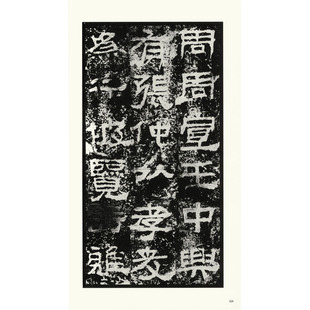 周周宣王中興
有張仲以孝友
為行披覽雅